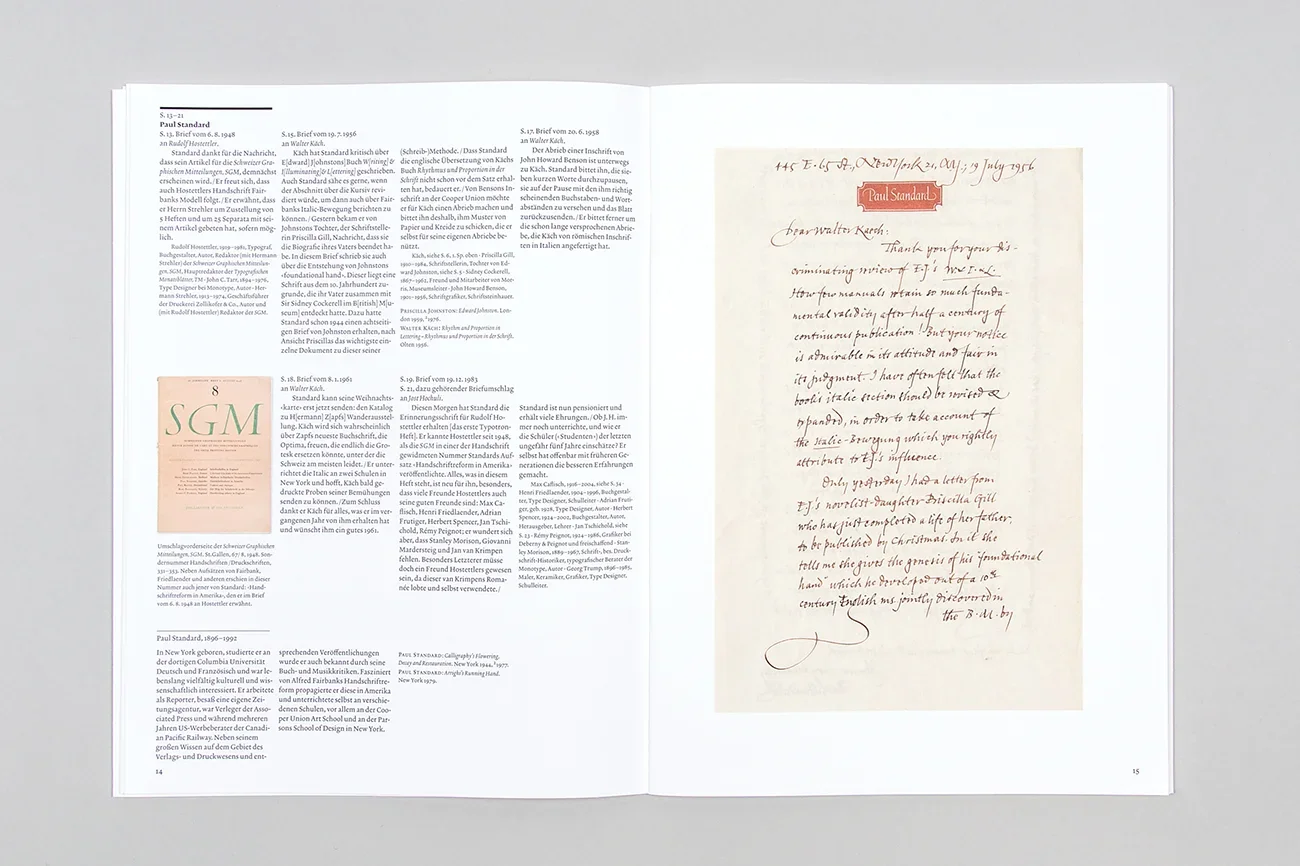 S. 13–21
Paul Standard
S. 13. Brief vom 6. 8. 1948
an Rudolf Hostettler.
Standard dankt für die Nachricht,
dass sein Artikel für die Schweizer Gra-
phischen Mitteilungen, SGM, demnächst
erscheinen wird. / Er freut sich, dass
auch Hostettlers Handschrift Fair-
banks Modell folgt. / Er erwähnt, dass
er Herrn Strehler um Zustellung von
5 Heften und um 25 Separata mit sei-
nem Artikel gebeten hat, sofern mög-
lich.
Rudolf Hostettler, 1919–1981, Typograf,
Buchgestalter, Autor, Redaktor (mit Hermann
Strehler) der Schweizer Graphischen Mitteilun-
gen, SGM, Hauptredaktor der Typografischen
Monatsblätter, TM · John C. Tarr, 1894–1976,
Type Designer bei Monotype, Autor · Her-
mann Strehler, 1913–1974, Geschäftsführer
der Druckerei Zollikofer & Co., Autor und
(mit Rudolf Hostettler) Redaktor des SGM.
S. 15. Brief vom 19. 7. 1956
an Walter Käch.
Käch hat Standard kritisch über
E[dward] J[ohnstons] Buch W[riting] &
I[lluminating] & L[ettering] geschrieben.
Auch Standard sähe es gerne, wenn
der Abschnitt über die Kursiv revi-
diert würde, um dann auch über Fair-
banks Italic-Bewegung berichten zu
können. / Gestern bekam er von
Johnstons Tochter, der Schriftstelle-
rin Priscilla Gill, Nachricht, dass sie
die Biografie ihres Vaters beendet ha-
be. In diesem Brief schrieb sie auch
über die Entstehung von Johnstons
›foundational hand‹. Dieser liegt eine
Schrift aus dem 10. Jahrhundert zu-
grunde, die ihr Vater zusammen mit
Sir Sidney Cockerell im B[ritish] M[u-
seum] entdeckt hatte. Dazu hatte
Standard schon 1944 einen achtseiti-
gen Brief von Johnston erhalten, nach
Ansicht Priscillas das wichtigste ein-
zelne Dokument zu dieser seiner
(Schreib-)Methode. / Dass Standard
die englische Übersetzung von Kächs
Buch Rhythmus und Proportion in der
Schrift nicht schon vor dem Satz erhal-
ten hat, bedauert er. / Von Bensons In-
schrift an der Cooper Union möchte
er für Käch einen Abrieb machen und
bittet ihn deshalb, ihm Muster von
Papier und Kreide zu schicken, die er
selbst für seine eigenen Abriebe be-
nützt.
Käch, siehe S. 6, 1. Sp. oben · Priscilla Gill,
1910–1984, Schriftstellerin, Tochter von Ed-
ward Johnston, siehe S. 5 · Sidney Cockerell,
1867–1962, Freund und Mitarbeiter von Mor-
ris, Museumsleiter · John Howard Benson,
1901–1956, Schriftgrafiker, Schriftsteinhauer.
Priscilla Johnston: Edward Johnston. Lon-
don 1959, ²1976.
Walter Käch: Rhythm and Proportion in
Lettering – Rhythmus und Proportion in der Schrift.
Olten 1956.
S. 17. Brief vom 20. 6. 1958
an Walter Käch.
Der Abrieb einer Inschrift von
John Howard Benson ist unterwegs
zu Käch. Standard bittet ihn, die sie-
ben kurzen Worte durchzupausen,
sie auf der Pause mit den ihm richtig
scheinenden Buchstaben- und Wort-
abständen zu versehen und das Blatt
zurückzusenden. / Er bittet ferner um
die schon lange versprochenen Abrie-
be, die Käch von römischen Inschrif-
ten in Italien angefertigt hat.
8
SGM
Umschlagvorderseite der Schweizer Graphischen
Mitteilungen, SGM, St. Gallen, 67/8, 1948. Son-
dernummer Handschriften / Druckschriften,
331–353. Neben Aufsätzen von Fairbank,
Friedlaender und anderen erschien in dieser
Nummer auch jener von Standard: ›Hand-
schriftreform in Amerika‹, den er im Brief
vom 6. 8. 1948 an Hostettler erwähnt.
S. 18. Brief vom 8. 1. 1961
an Walter Käch.
Standard kann seine ›Weihnachts-
karte‹ erst jetzt senden: den Katalog
zu H[ermann] Z[apfs] Wanderausstel-
lung. Käch wird sich wahrscheinlich
über Zapfs neueste Buchschrift, die
Optima, freuen, die endlich die Gro-
tesk ersetzen könnte, unter der die
Schweiz am meisten leidet. / Er unter-
richtet die Italic an zwei Schulen in
New York und hofft, Käch bald ge-
druckte Proben seiner Bemühungen
senden zu können. / Zum Schluss
dankt er Käch für alles, was er im ver-
gangenen Jahr von ihm erhalten hat
und wünscht ihm ein gutes 1961.
S. 19. Brief vom 19. 12. 1983
S. 21, dazu gehörender Briefumschlag
an Jost Hochuli.
Diesen Morgen hat Standard die
Erinnerungsschrift für Rudolf Ho-
stettler erhalten [das erste Typotron-
Heft]. Er kannte Hostettler seit 1948,
als die SGM in einer der Handschrift
gewidmeten Nummer Standards Auf-
satz ›Handschriftreform in Amerika‹
veröffentlichte. Alles, was in diesem
Heft steht, ist neu für ihn, besonders,
dass viele Freunde Hostettlers auch
seine guten Freunde sind: Max Ca-
flisch, Henri Friedlaender, Adrian
Frutiger, Herbert Spencer, Jan Tschi-
chold, Rémy Peignot; er wundert sich
aber, dass Stanley Morison, Giovanni
Mardersteig und Jan van Krimpen
fehlen. Besonders Letzterer müsse
doch ein Freund Hostettlers gewesen
sein, da dieser van Krimpens Roma-
née lobte und selbst verwendete. /
Standard ist nun pensioniert und
erhält viele Ehrungen. / Ob J. H. im-
mer noch unterrichte, und wie er
die Schüler (›Studenten‹) der letzten
ungefähr fünf Jahre einschätze? Er
selbst hat offenbar mit früheren Ge-
nerationen die besseren Erfahrungen
gemacht.
Max Caflisch, 1916–2004, siehe S. 54 ·
Henri Friedlaender, 1904–1996, Buchgestal-
ter, Type Designer, Schulleiter · Adrian Fruti-
ger, geb. 1928, Type Designer, Autor · Herbert
Spencer, 1924–2002, Buchgestalter, Autor,
Herausgeber, Lehrer · Jan Tschichold, siehe
S. 13 · Rémy Peignot, 1924–1986, Grafiker bei
Deberny & Peignot und freischaffend · Stan-
ley Morison, 1889–1967, Schrift-, bes. Druck-
schrift-Historiker, typografischer Berater der
Monotype, Autor · Georg Trump, 1896–1985,
Maler, Keramiker, Grafiker, Type Designer,
Schulleiter.
Paul Standard, 1896–1992
In New York geboren, studierte er an
der dortigen Columbia Universität
Deutsch und Französisch und war le-
benslang vielfältig kulturell und wis-
senschaftlich interessiert. Er arbeitete
als Reporter, besaß eine eigene Zei-
tungsagentur, war Verleger der Asso-
ciated Press und während mehreren
Jahren US-Werbeberater der Canadi-
an Pacific Railway. Neben seinem
großen Wissen auf dem Gebiet des
Verlags- und Druckwesens und ent-
sprechenden Veröffentlichungen
wurde er auch bekannt durch seine
Buch- und Musikkritiken. Fasziniert
von Alfred Fairbanks Handschriftre-
form propagierte er diese in Amerika
und unterrichtete selbst an verschie-
denen Schulen, vor allem an der Coo-
per Union Art School und an der Par-
sons School of Design in New York.
Paul Standard: Calligraphy's Flowering,
Decay and Restauration. New York 1944, ²1977.
Paul Standard: Arrighi's Running Hand.
New York 1979.
14
445 E. 65 St., New York 21, N.Y.; 19 July 1956
Paul Standard
Dear Walter Kaech:
Thank you for your dis-
criminating review of E.J.'s W & I & L.
How few manuals retain so much funda-
mental validity after half a century of
continuous publication! But your notice
is admirable in its attitude and fair in
its judgment. I have often felt that the
book's italic section should be revised &
expanded, in order to take account of
the Italic-Bewegung which you rightly
attribute to E.J.'s influence.
Only yesterday I had a letter from
E.J's novelist-daughter Priscilla Gill
who has just completed a life of her father,
to be published by Christmas. In it she
tells me she gives the genesis of his 'foundational
hand' which he developed out of a 10th
century English ms. jointly discovered in
the B.M. by
15